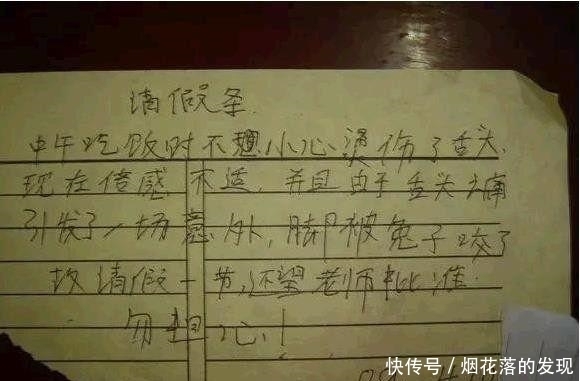 请假条
中午吃饭时不想小心烫伤了舌头,
现在倍感不适,并且由于舌头太痛
引发了一场意外,脚被兔子咬了
故请假一节,还望老师批准.
勿担心!
快传号/烟花落的发现